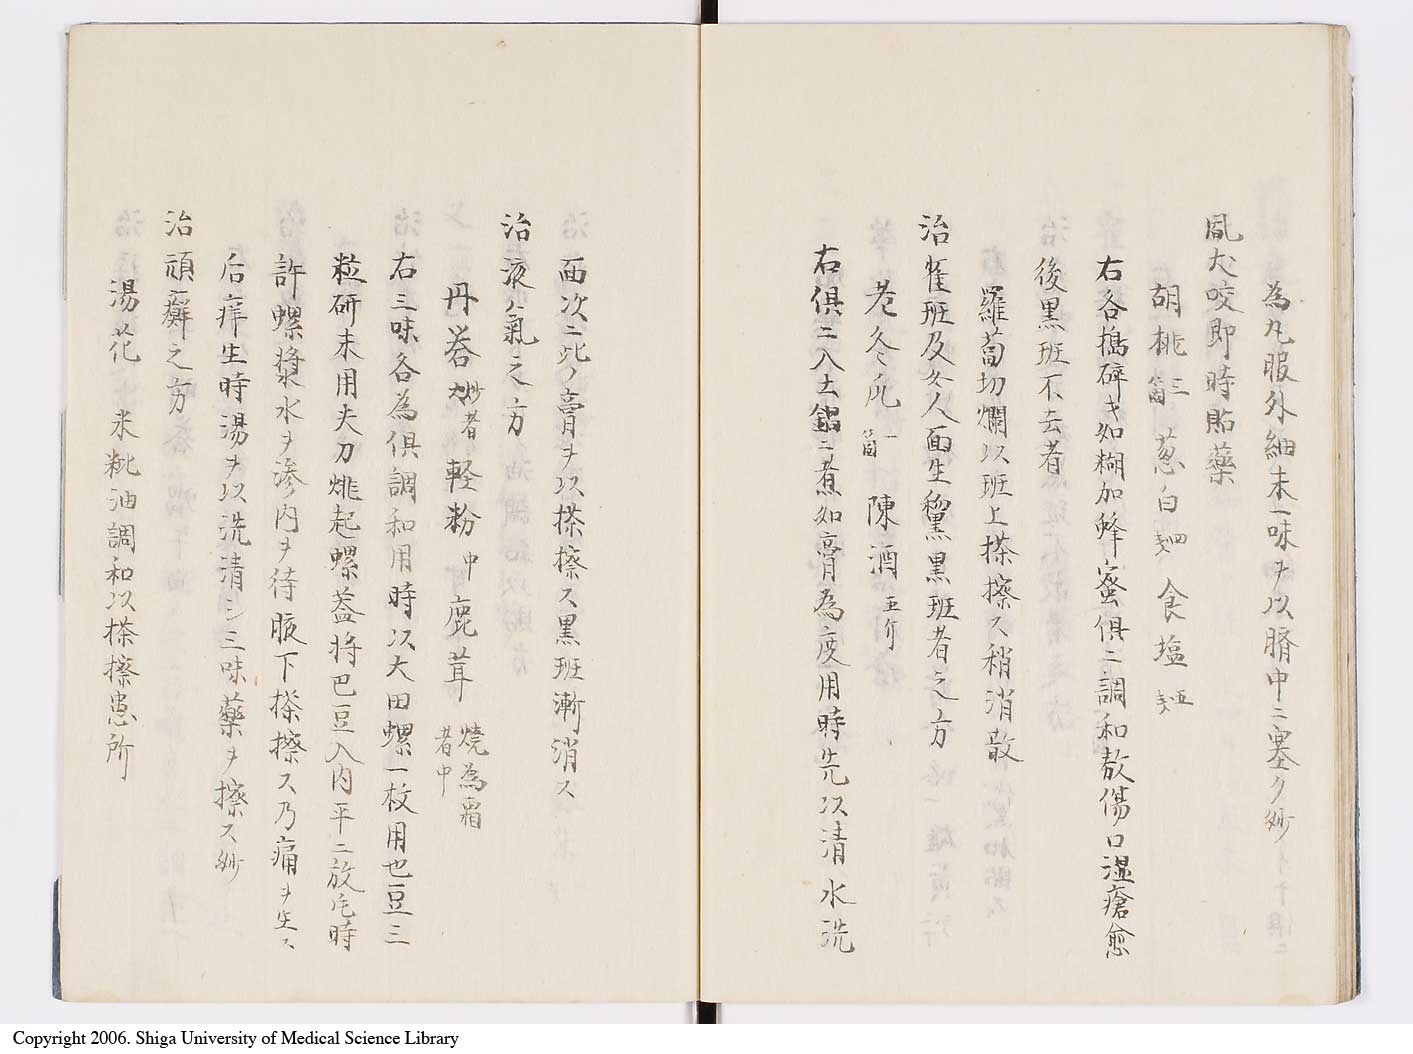 為丸服外細末一味ヲ以臍中ニ塞ク妙
風犬咬即時貼藥
胡桃 三箇 葱白 四 食塩 五
右各搗碎キ如糊加蜂蜜俱ニ調和敷傷口温瘡愈
後黒班不去者
羅蔔切爛以班上搽擦ス稍消散
治雀班及女人面生黧黒班者之方
冬瓜 一箇 陳酒 五斤
右俱ニ入土鍋ニ煮如膏為度用時先以清水洗
面次ニ此ノ膏ヲ以搽擦ス黒班漸消ス
治液氣之方
丹礬 炒者 軽粉 中 鹿茸 燒為霜者中
右三味各為俱調和用時以大田螺一枚用也豆三
粒研末用夫刀姚起螺蓋将巴豆入内平ニ放宅時
許螺漿水ヲ滲内ヲ待腋下搽擦ス乃痛ヲ生ス
后痒生時湯ヲ以洗清シ三味藥ヲ擦ス妙
治頑癬之方
湯花 米粃油調和以搽擦患所
Copyright 2006. Shiga University of Medical Science Library